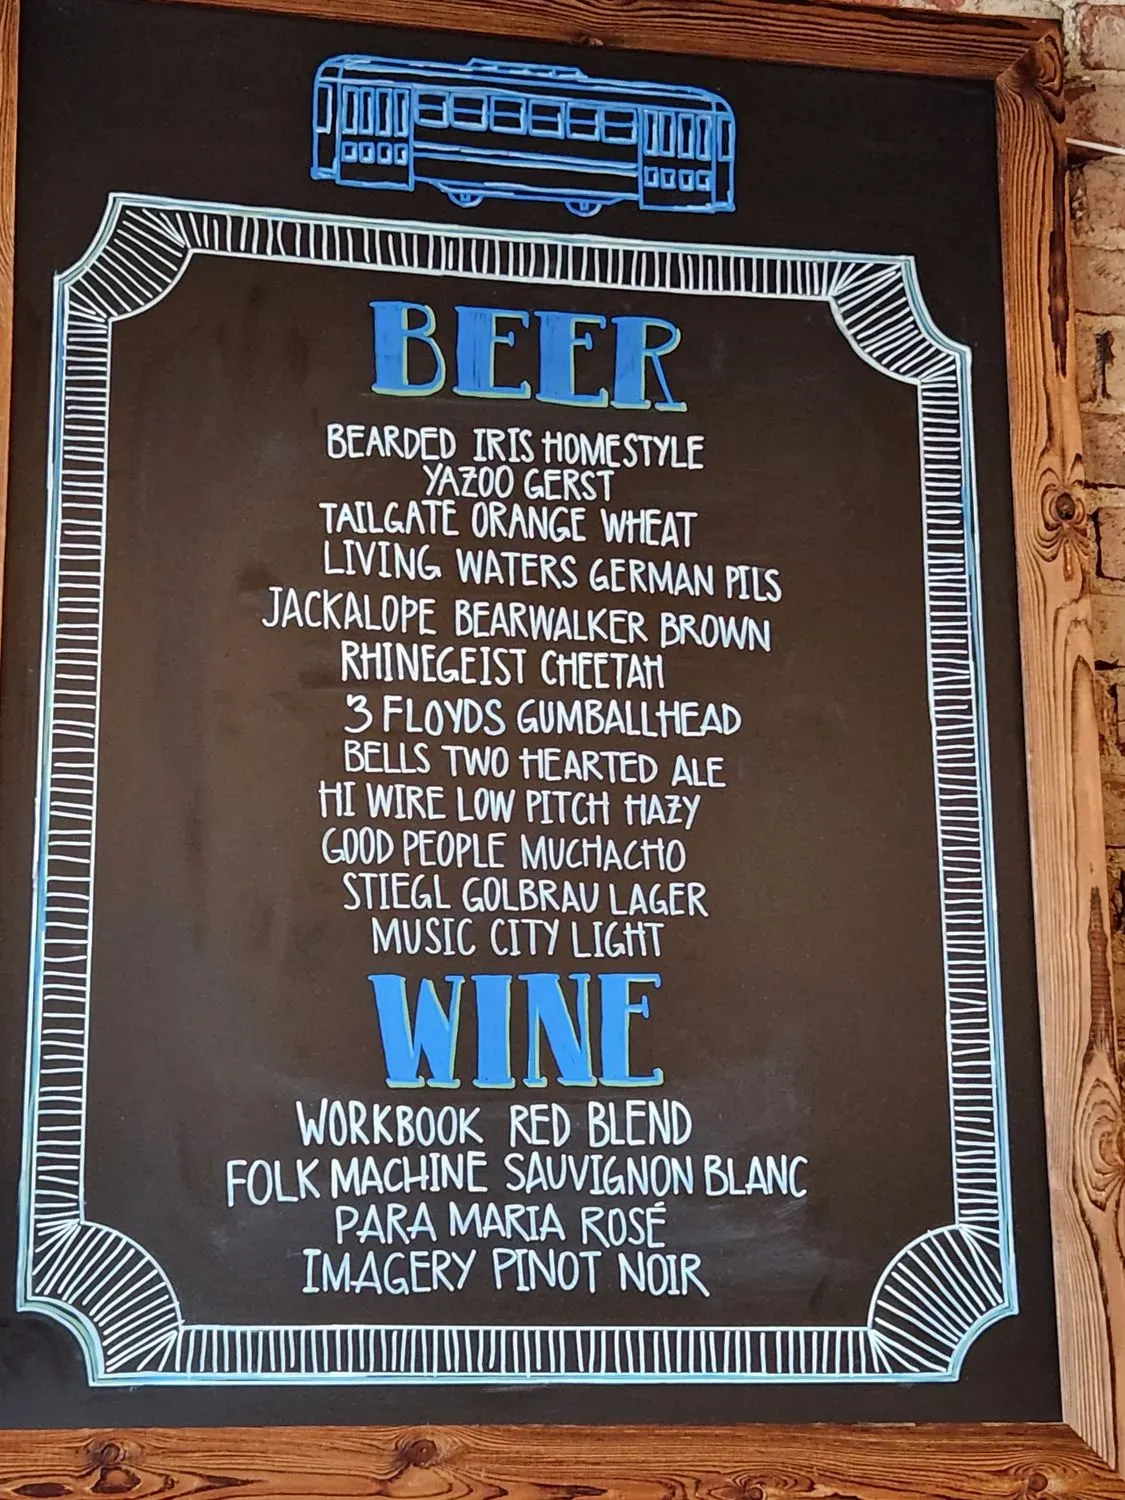 BEER
BEARDED IRIS HOMESTYLE
YAZOO GERST
TAILGATE ORANGE WHEAT
LIVING WATERS GERMAN PILS
JACKALOPE BEARWALKER BROWN
RHINEGEIST CHEETAH
3 FLOYDS GUMBALLHEAD
BELLS TWO HEARTED ALE
HI WIRE LOW PITCH HAZY
GOOD PEOPLE MUCHACHO
STIEGL GOLBRAU LAGER
MUSIC CITY LIGHT
WINE
WORKBOOK RED BLEND
FOLK MACHINE SAUVIGNON BLANC
PARA MARIA ROSÉ
IMAGERY PINOT NOIR